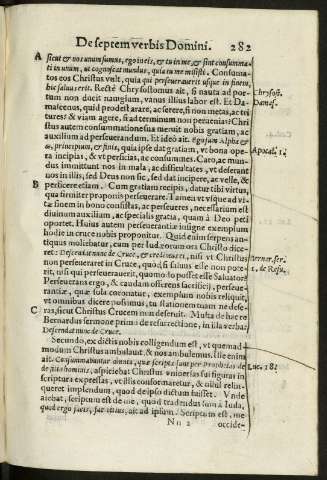 De septem verbis Domini. 282
A sicut & nos unum sumus, ego in eis, & tu in me, & sint consumma-
ti in unum, ut cognoscat mundus, quia tu me misisti. Consuma-
tos eos Christus vult, quia qui perseuerauerit usque in finem,
hic saluus erit. Rectè Chrysostomus ait, si nauta ad por- Chrysost.
tum non ducit nauigium, vanus illius labor est. Et Da- Damas.
mascenus, quid prodest arare, ac serere, si non metas, ac tri
tures? & viam agere, si ad terminum non perueniás? Chri
stus autem consummatione sua meruit nobis gratiam, ac
auxilium ad perseuerandum. Et ideò ait. Ego sum Alpha &
ω, principium, & finis, quia ipse dat gratiam, vt bona ope- Apocal. 1.
ra incipias, & vt perficias, ac consummes. Caro, ac mun-
dus immittunt nos in mala, ac difficultates, vt deserant
nos in illis, sed Deus non sic, sed dat incipere, ac velle, &
B perficere etiam. Cum gratia recipis, datur tibi virtus,
qua firmiter proponis perseuerare. Tamen vt vsque ad vi-
tæ finem in bono consistas, ac perseueres, necessarium est
diuinum auxilium, ac specialis gratia, quam à Deo peti
oportet. Huius autem perseuerantiæ insigne exemplum
hodie in cruce nobis proponitur. Quid enim serpens an-
tiquus moliebatur, cum per Iudæorum ora Christo dice-
ret: Descendat nunc de Cruce, & credimus ei, nisi vt Christus Berner. ser.
non perseueraret in Cruce, quod si saluus esse non pote- 1. de Resu.
rit, nisi qui perseuerauerit, quomodo posset esse Saluator?
Perseuerans ergo, & caudam offerens sacrificij, perseue-
rantiæ, quæ sola coronatur, exemplum nobis reliquit,
vt omnibus dicere possimus, tu stationem tuam ne dese-
C ras, sicut Christus Crucem non deseruit. Multa de hac re
Bernardus sermone primo de resurrectione, in illa verba:
Descendat nunc de Cruce.
Secundo, ex dictis nobis colligendum est, vt quemad-
modum Christus ambulauit, & nos ambulemus. Ille enim
ait. Consummabuntur omnia, quæ scripta sunt per Prophetas de Luc. 18.
filio hominis, aspiciebat Christus vniuersas sui figuras in
scriptura expressas, vt illis conformaretur, & nihil relin-
queret implendum, quod de ipso dictum fuisset. Vnde
aiebat, scriptum est de me, quod tradendus sum à Iuda,
quod ergo facis, fac citius, ait ad ipsum. Scriptum est, me
Nn 2 occide-